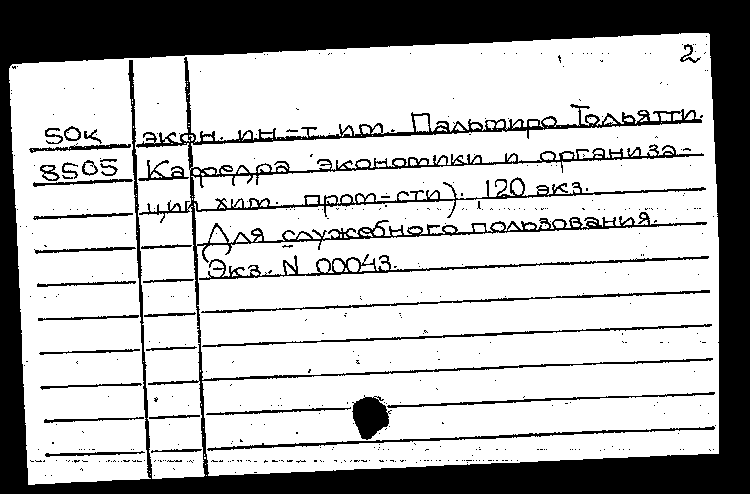 2
50к экон. ин-т им. Пальмиро Тольятти.
8505 Кафедра экономики и организа-
ции хим. пром-сти). 120 экз.
Для служебного пользования.
Экз. N 00043.